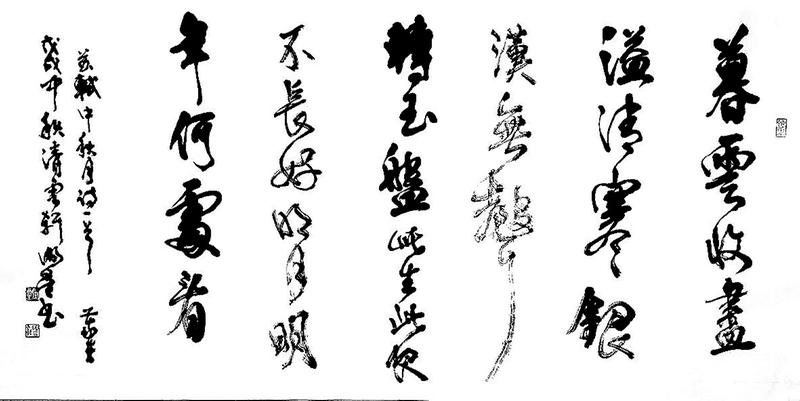 暮雲收盡
溢清寒銀
漢無聲
轉玉盤此生此夜
不長好明月明
年何處看
蘇軾中秋月詩一首
戊戌中秋清雲軒書